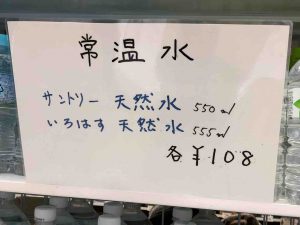 常温水
サントリー 天然水 550ml
いろはす 天然水 555ml
各¥108